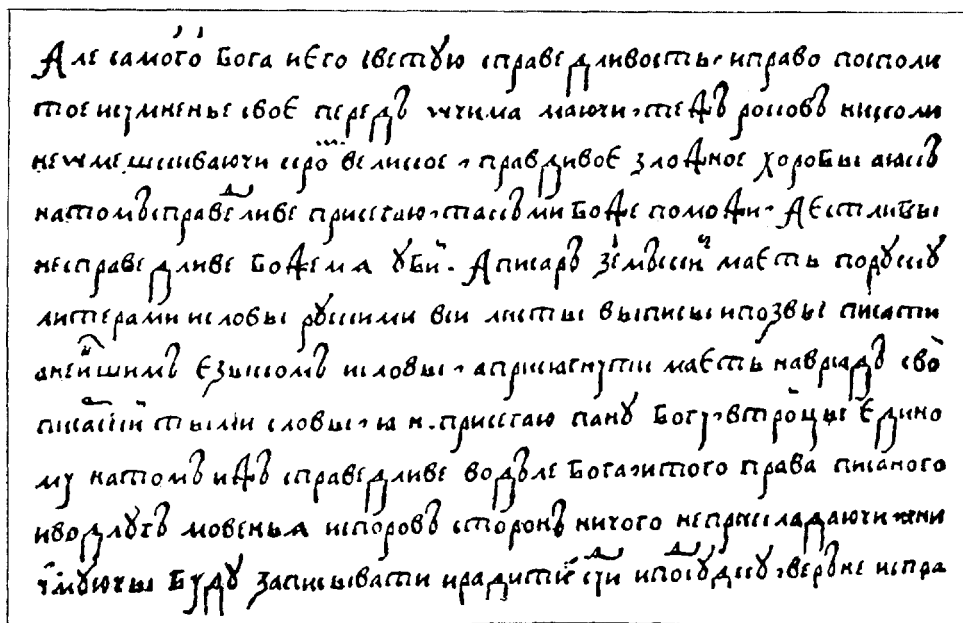 Але самого Бога и Єго светую справедливость, и право посполи
тое и сумненье своє передъ ѡчима маючи, тежъ росковъ николи
не ѡмешкиваючи кро великое, правдивоє зложное хоробы, а якъ
на томъ справедливе присегаю, такъ ми Боже поможи. А єстли бы
несправедливе Боже мя убий. А писаръ земъский маєть по руску
литерами и словы рускими вси листы выписы и позвы писати
а не иншимъ єзыкомъ и словы, а присягнути маєть на врядъ сво
писаский тыми словы, я н. присегаю пану Богу, въ тройцы Єдино
му на томъ ижъ справедливе водъле Бога, и того права писаного
и водлугъ мовенья и споровъ сторонъ ничого не прикладаючи и ни
уймуючы буду записывати и радити и суди и по суду, верне и спра